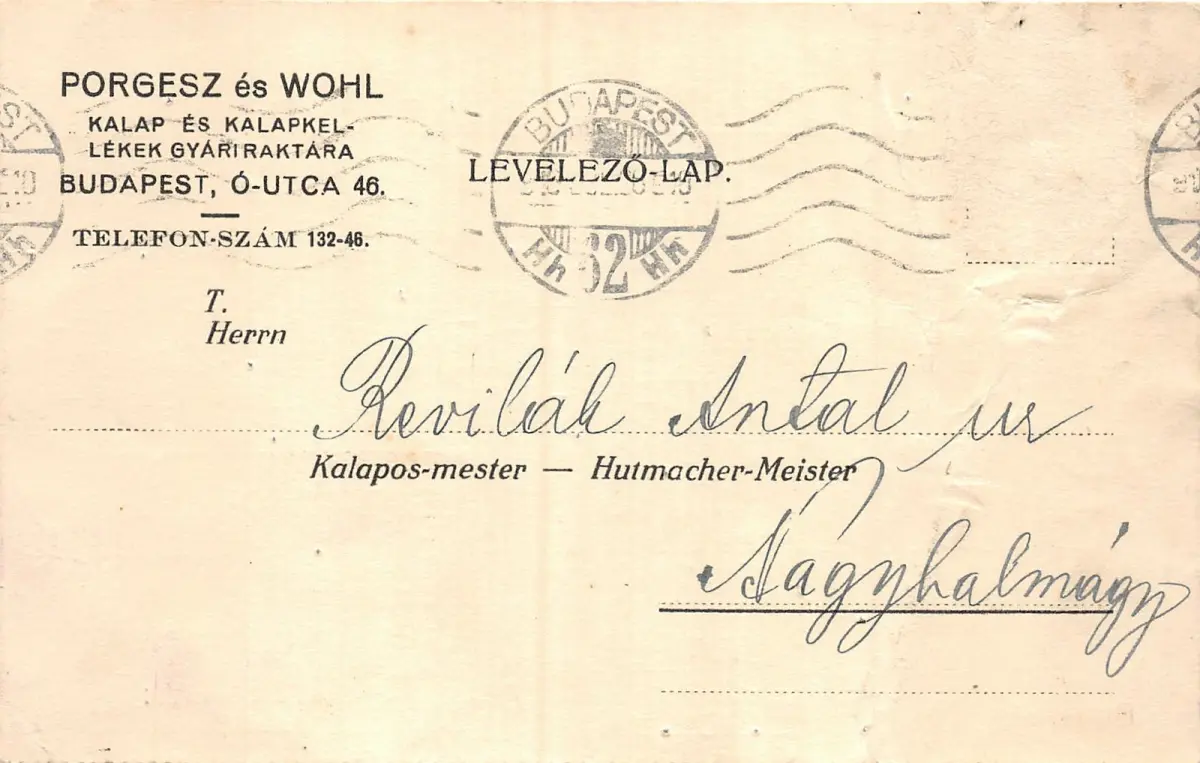 PORGESZ és WOHL
KALAP ÉS KALAPKEL-
LÉKEK GYÁRI RAKTÁRA
BUDAPEST, Ó-UTCA 46.
TELEFON-SZÁM 132-46.
BUDAPEST
LEVELEZŐ-LAP.
Hh 62 Hh
T.
Herrn
Revilák Antal ur
Kalapos-mester — Hutmacher-Meister
Nagyhalmágy